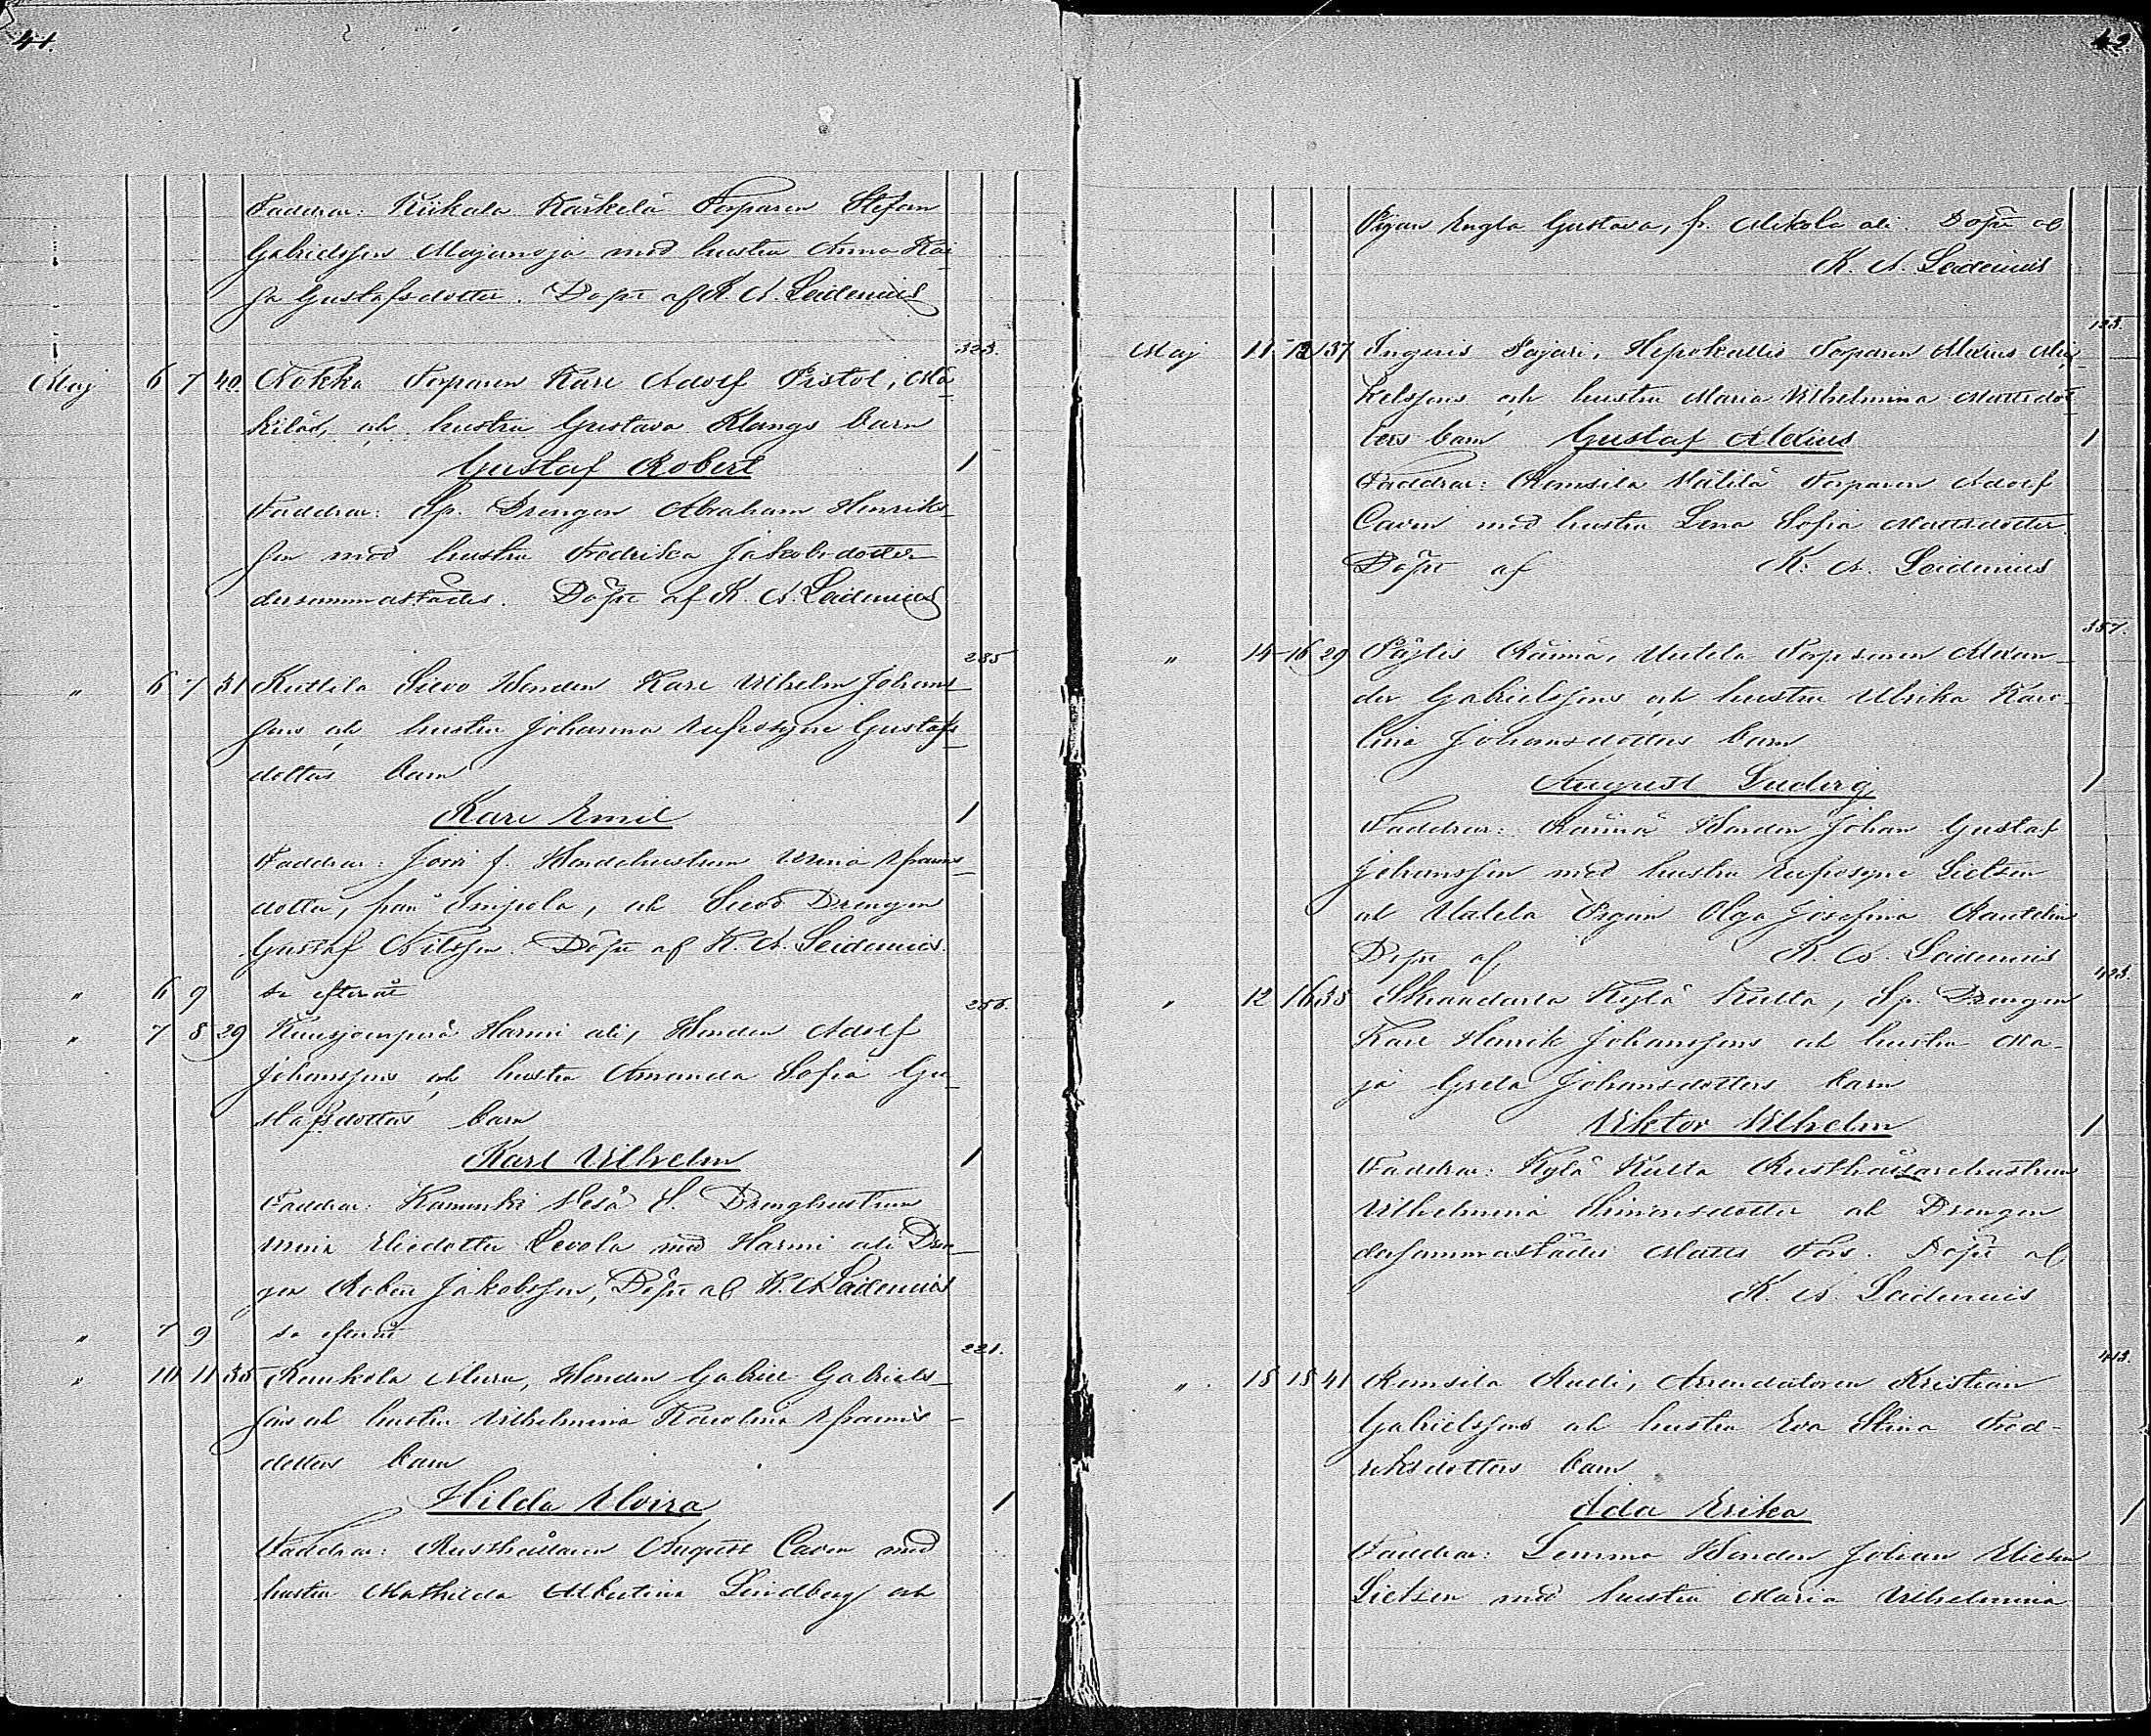 41.
Faddrar: Kiikala Kärkelä Torparen Stefan
Gabrielsson Majanoja med hustru Anna Kai
sa Gustafsdotter. Döpt af K. A. Leidenius
323.
Maj 6 7 40 Nokka Torparen Karl Adolf Pistol, Mä
kilás, och hustru Gustava Klangs barn
Gustaf Robert 1
Faddrar: Sp. Drengen Abraham Henriks-
son med hustru Fredrika Jakobsdotter
dersammastädes. Döpt af K. A. Leidenius
285
" 6 7 31 Kuttila Sievo Bonden Karl Vilhelm Johans
sons och hustru Johanna Eufrosyne Gustafs
dotters barn
Karl Emil 1
Faddrar: f. Bondehustrun Efraims
dotter, från Impola, och Sievo Drengen
Gustaf Nilsson. Döpt af K. A. Leidenius.
" 6 9 se efteråt
256.
" 7 8 29 Kuusjoenperä Harmi ali, Bonden Adolf
Johanssons och hustru Amanda Sofia Gu-
stafsdotters barn
Karl Vilhelm 1
Faddrar: Vesa S. Drenghustrun
Eliedotter med Harmi ali Dren-
gen Robert Jakobsson, Döpt af K. A. Leidenius
" 7 9 se efteråt
221.
" 10 11 35 Raukola Bonden Gabriel Gabriels-
sons och hustru Vilhelmina Karolina Efraims-
dotters barn
Hilda Elvira 1
Faddrar: Rusthållaren August Caven med
hustru Mathilda Albertina Lindberg och
42.
Pigan Engla Gustava, fr. Mikola ali. Döpt af
K. A. Leidenius
123.
Maj 11 12 37 Ingeris Pajari, Hepokallio Torparen Alexius Mi
kelssons och hustru Maria Vilhelmina Mattsdot
ters barn Gustaf Alexius 1
Faddrar: Romsila Välilä Torparen Adolf
Caven med hustru Lena Sofia Mattsdotter
Döpt af K. A. Leidenius
357.
" 14 16 29 Pöytis Räimä, Uutela Torparen Alexan-
der Gabrielssons och hustru Ulrika Karo-
lina Johansdotters barn
August Ludvig 1
Faddrar: Räimä Bonden Johan Gustaf
Johansson med hustru Eufrosyne Lietzen
och Uutela Pigan Olga Josefina Rautelin
Döpt af K. A. Leidenius
423.
" 12 16 35 Skraudarla Kylä Kulta, Sp. Drengen
Karl Henrik Johanssons och hustru Ma-
ja Greta Johansdotters barn
Viktor Vilhelm 1
Faddrar: Kylä Kulta Rusthållarehustrun
Vilhelmina Simonsdotter och Drengen
dersammastädes Matts Fors. Döpt af
K. A. Leidenius
413.
" 18 18 41 Romsila Audi, Arrendatoren Kristian
Gabrielssons och hustru Eva Stina Fred-
riksdotters barn
Ida Erika 1
Faddrar: Lemmo Bonden Johan Elieson
Lietzen med hustru Maria Vilhelmina